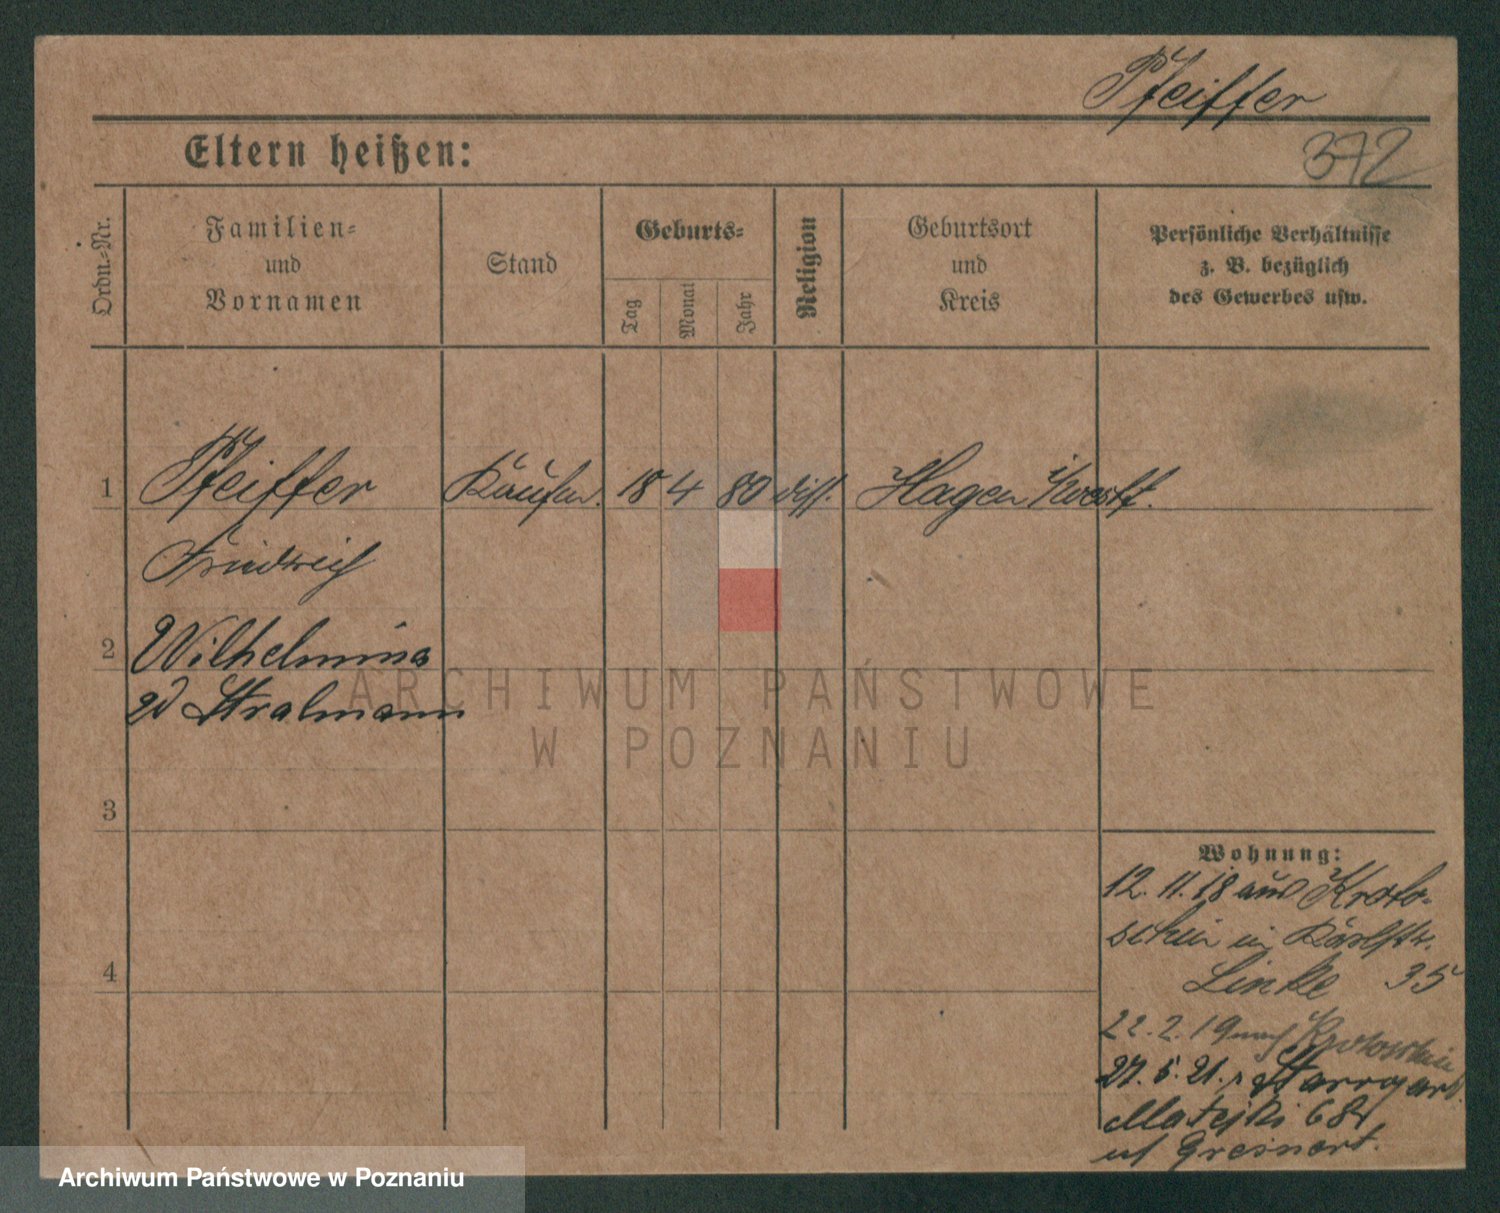 Pfeiffer
Eltern heißen:
372
Ordn.-Nr.
Familien-
und
Vornamen
Stand
Geburts-
Tag
Monat
Jahr
Religion
Geburtsort
und
Kreis
Persönliche Verhältnisse
z. B. bezüglich
des Gewerbes usw.
1 Pfeiffer Kaufm. 18 4 80 diss. Hagen Westf.
Friedrich
2 Wilhelmina
Stralmann
3
4
Wohnung:
12. 11. 18 aus Kroto-
schin in
Linke 35
22. 2. 19 nach Krotoschin
27. 5. 21. Starrgard
Matejki 68
ARCHIWUM PAŃSTWOWE
W POZNANIU
Archiwum Państwowe w Poznaniu